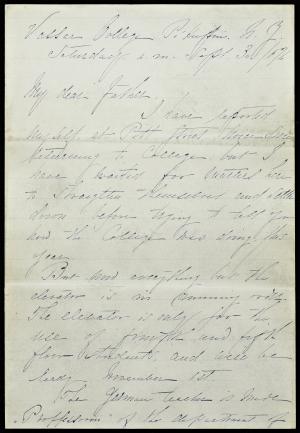 Vassar College Po'keepsie N. Y.
Saturday a.m. Sept. 30 1876
My dear Father.
I have reported
myself at Pitt Street since
returning to College but I
have waited for matters here
to straighten themselves and settle
down before trying to tell you
how the College was doing this
year.
But now everything but the
elevator is in running
The elevator is only for the
use of fourth and fifth
floor students and will be
ready November 1st.
The German teacher is made
"Professor" of the department of